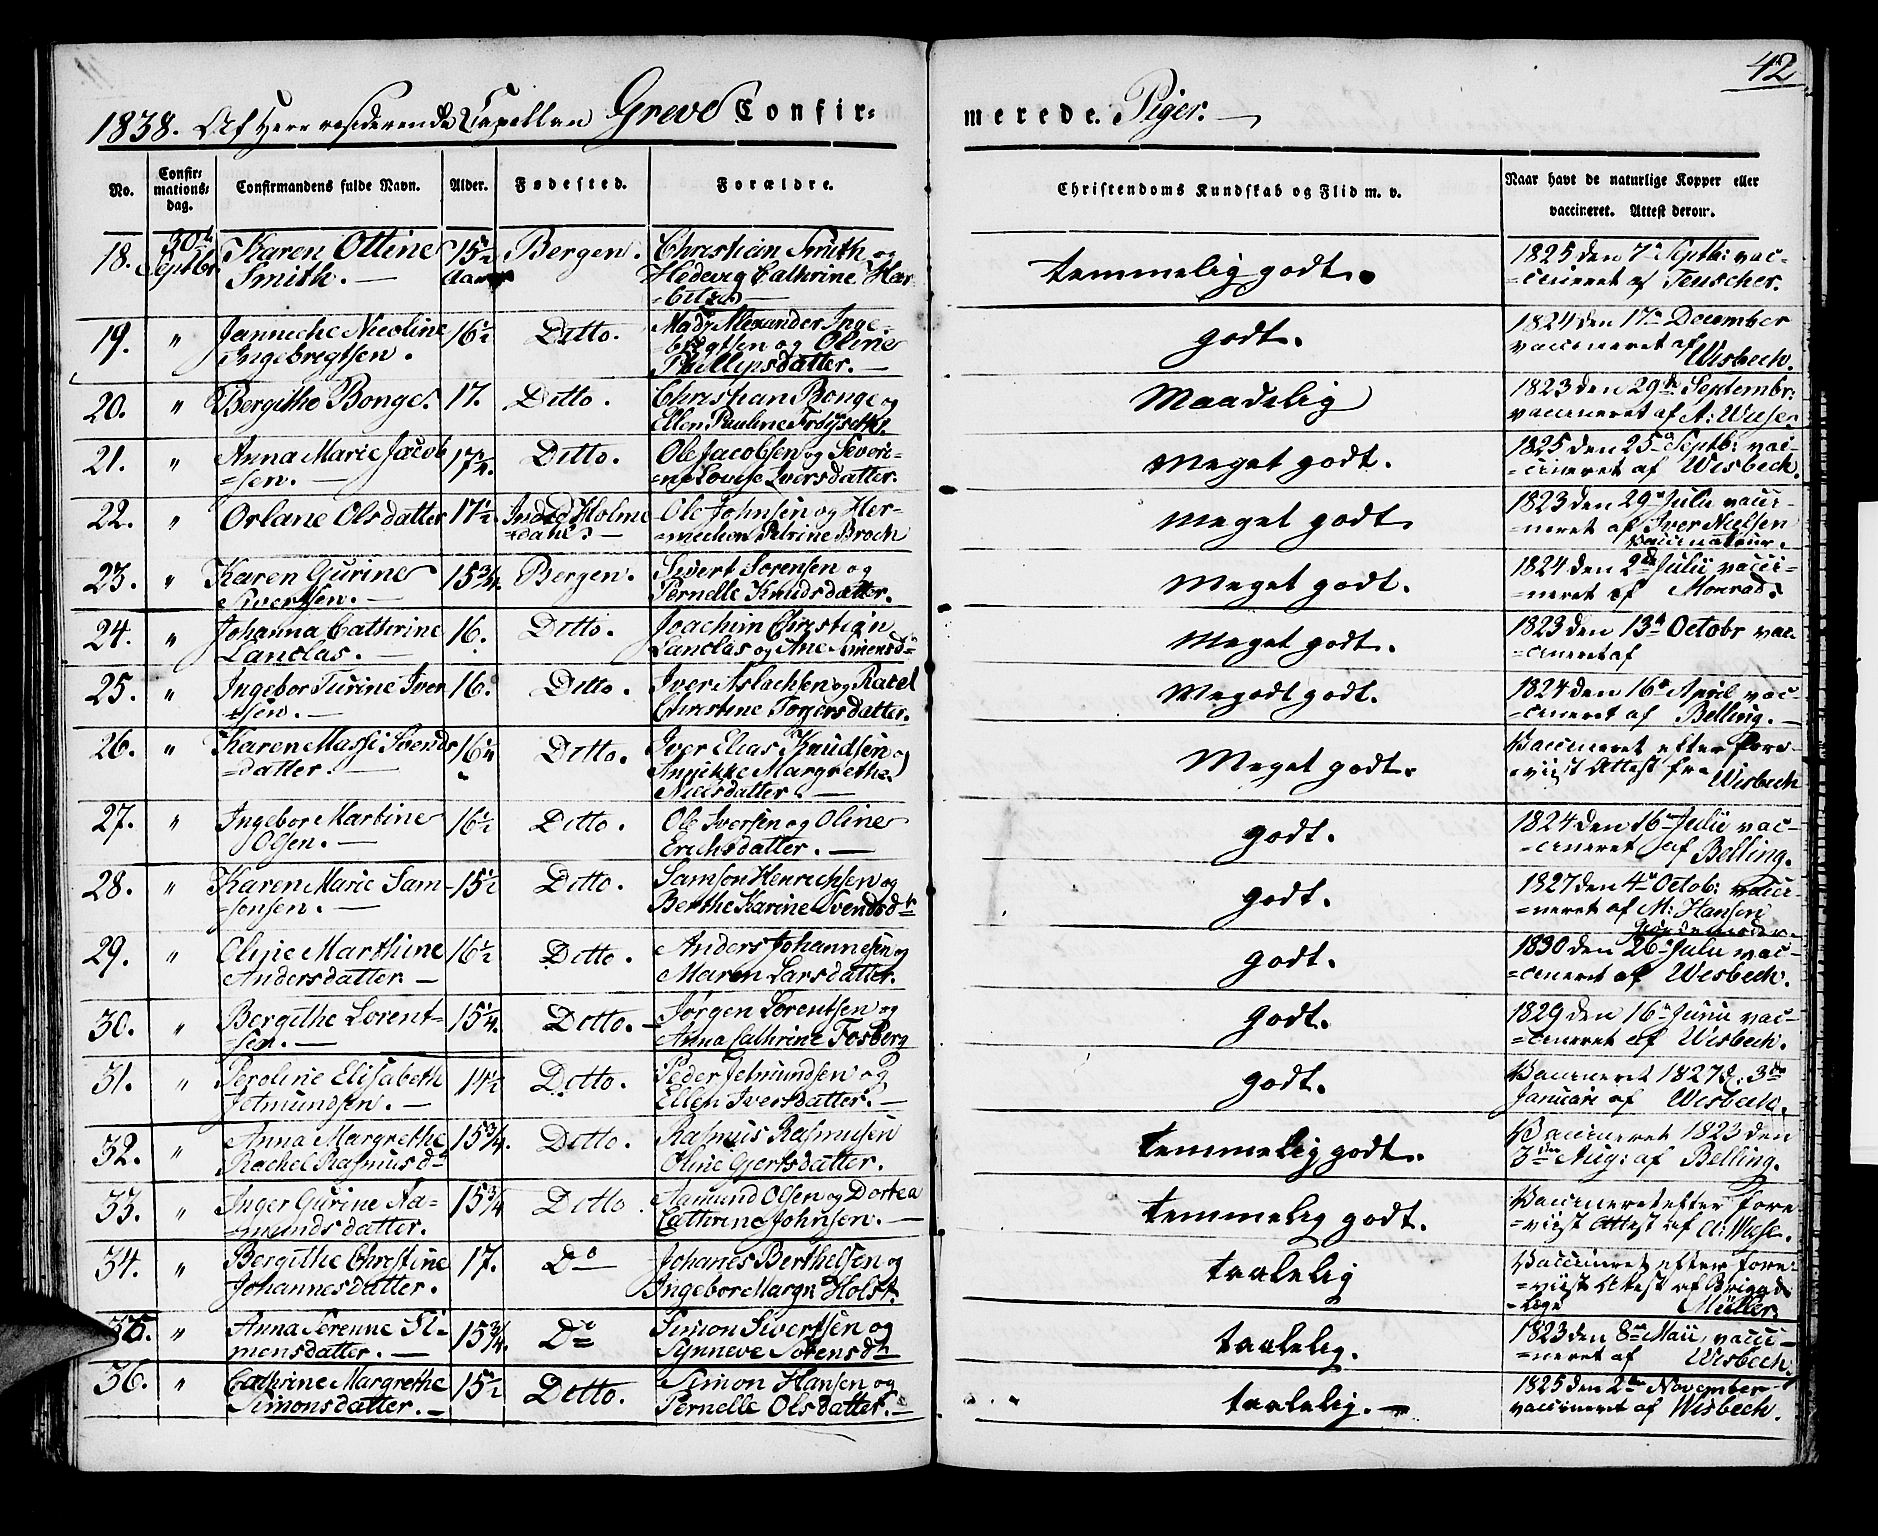 42
1838. Af Herr residerende Capellan Greve Confirmerede Piger.
No. Confirmationsdag. Confirmandens fulde Navn. Alder. Fødested. Forældre. Christendoms Kundskab og Flid m. v. Naar havt de naturlige Kopper eller vaccineret. Attest derom.
18. 30te Septbr. Karen Ottine Smith. 15½ Aar Bergen. Christian Smith og Hedevig Cathrine temmelig godt. 1825 den 7de Septb: vaccineret af Teuscher.
19. " Janniche Nicoline Ingebregtsen. 16½ Ditto. Mads Alexander Ingebregtsen og Oline Phillipsdatter. godt. 1824 den 17de December vaccineret af Wisbech.
20. " Bergithe Bonge. 17. Ditto. Christian Bonge og Ellen Pauline Maadelig 1823 den 29de Septembr: vaccineret af A: Wiese
21. " Anna Marie Jacobsen. 17¼. Ditto. Ole Jacobsen og Severine Lovise Iversdatter. Meget godt. 1825 den 25de Septb: vaccineret af Wisbech.
22. " Orlane Olsdatter 17½. Indre Holmedahl Ole Johnsen og Hermechen Petrine Broch meget godt 1823 den 29de Julii vaccineret af Iver Nielsen Vaccinateur.
23. " Karen Gurine Sivertsen. 15¾. Bergen. Sivert Sørensen og Pernelle Knudsdatter. Meget godt. 1824 den 2de Julii vaccineret af Monrad.
24. " Johanna Cathrine Lanclas. 16. Ditto. Joachim Christian Lanclas og Ane Amensdr Meget godt. 1823 den 13de Octobr vaccineret af
25. " Ingebor Turine Iversen. 16. Ditto. Iver Aslachsen og Rakel Christine Torgersdatter. Megodt godt. 1824 den 16de April vaccineret af Belling.
26. " Karen Massi Svendsdatter. 16¼ Ditto. Iver Elias Knudsen og Annikke Margrethe Nielsdatter. Meget godt. Vaccineret efter foreviist Attest fra Wisbech
27. " Ingebor Martine Olsen. 16½ Ditto. Ole Iversen og Oline Erichsdatter. godt. 1824 den 16de Julii vaccineret af Belling.
28. " Karen Marie Samsonsen. 15½ Ditto. Samson Henrichsen og Berthe Karine Svendsdtr godt. 1827 den 4de Octob: vaccineret af M: Hansen Gjordemoder.
29. " Olinie Marthine Andersdatter 16½ Ditto. Anders Johannesen og Maren Larsdatter. godt. 1830 den 26de Julii vaccineret af Wisbech.
30. " Bergithe Lorentsen. 15¼. Ditto. Jørgen Lorentsen og Anna Cathrine Fosberg godt. 1829 den 16de Junii vaccineret af Wisbech.
31. " Peroline Elisabeth Jetmundsen. 14½ Ditto. Peder Jetmundsen og Ellen Iversdatter. godt. Vaccineret 1827 d. 3de Januari af Wisbech.
32. " Anna Margrethe Rachel Rasmusdr 15¾. Ditto. Rasmus Rasmusen Oline Gjertsdatter. temmelig godt. Vaccineret 1823 den 3die Aug: af Belling.
33. " Inger Gurine Aamundsdatter. 15¾ Ditto. Aamund Olsen og Dortea Cathrine Johnsen. temmelig godt. Vaccineret efter foreviist Attest af A: Wiese.
34. " Bergithe Christine Johannesdatter. 17. Do Johanes Berthelsen og Ingebor Margr. Holst. taalelig Vaccineret efter foreviist Attest af Brigadelæge Müller
35. " Anna Serenne Simonsdatter. 15¾. Do Simon Sivertsen og Synneve Sørensdr taalelig. 1823 den 8de Maii vaccineret af Wisbech.
36. " Cathrine Margrethe Simonsdatter. 15½ Ditto. Simon Hansen og Pernelle Olsdatter. taalelig. 1825 den 2den November vaccineret af Wisbech.